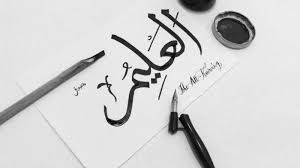 العليم
The All-Knowing